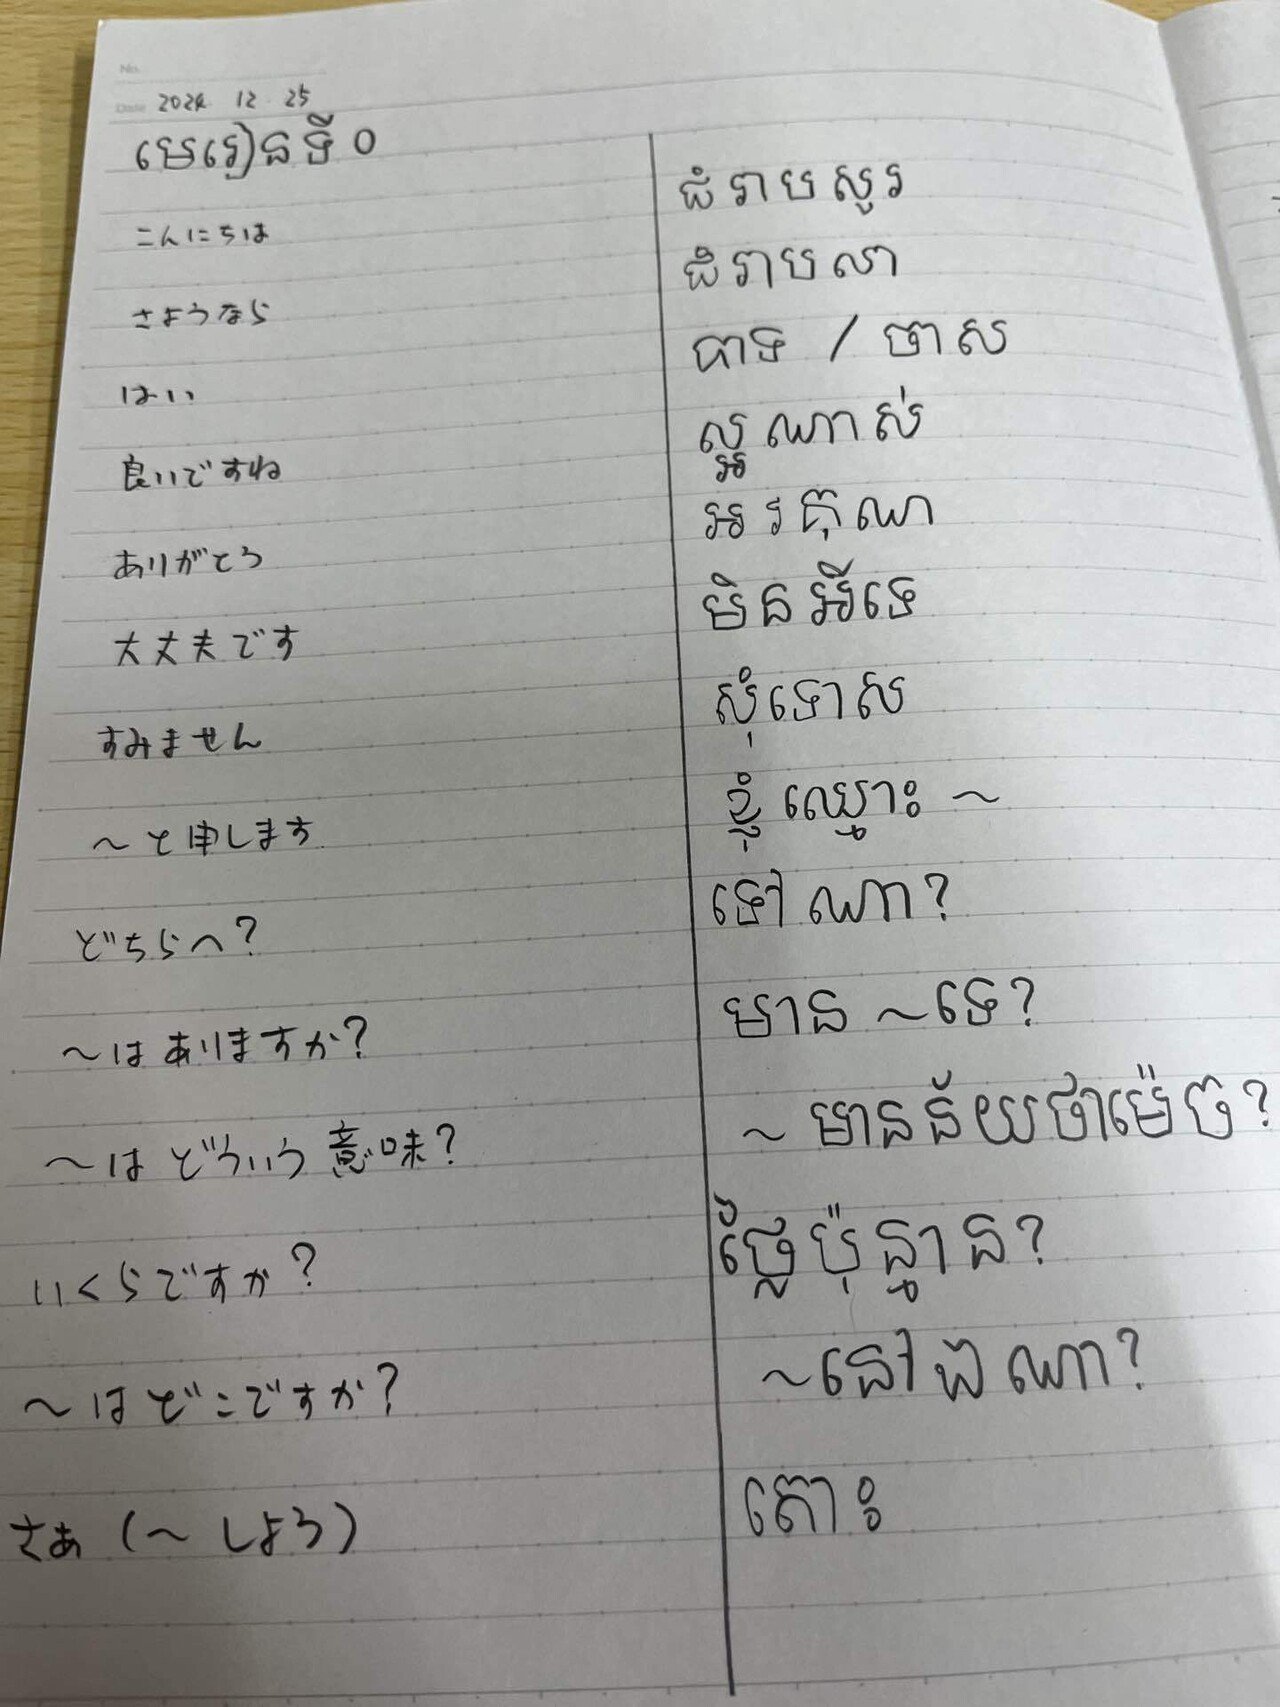 No.
Date 2024 12 25
មេរៀនទី 0
こんにちは ជំរាបសួរ
さようなら ជំរាបលា
はい បាទ / ចាស
良いですね ល្អណាស់
ありがとう អរគុណ
大丈夫です មិនអីទេ
すみません សុំទោស
～と申します ខ្ញុំឈ្មោះ ~
どちらへ? ទៅណា?
～はありますか? មាន ~ទេ?
～はどういう意味? ~ មានន័យថាម៉េច?
いくらですか? ថ្លៃប៉ុន្មាន?
～はどこですか? ~នៅឯណា?
さあ (～しよう) តោះ